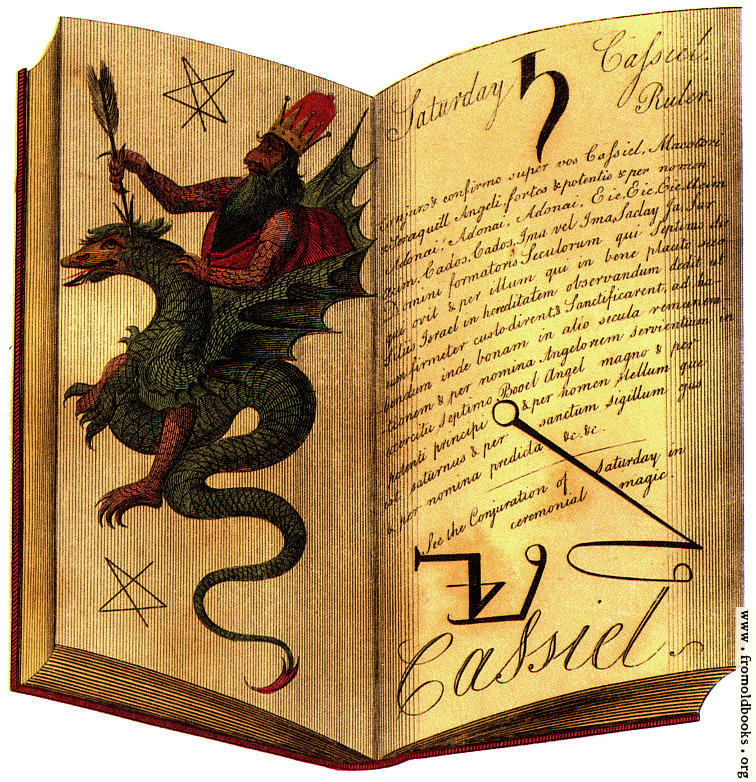 Saturday ♄ Cassiel.
Ruler.
Conjuro & confirmo super vos Cassiel, Macoton
et Seraquiel Angeli, fortes & potentis & per nomen
Adonai, Adonai, Adonai, Eie, Eie, Eie,
Cados, Cados, Ima vel Ima, Saday, Ja, Sar
Domini formatoris Seculorum qui Septimo die
qui ovit & per illum qui in bene placito suo
filiis Israel in hereditatem observandum dedit ut
eum firmiter custodirent & Sanctificarent, ad ha-
bendum inde bonam in alio secula remunera-
tionem & per nomina Angelorum servientium in
exercitu septimo Booel Angel magno & per
potenti principi & per homen stellum que
est saturnus & per sanctum sigillum gus
& per nomina predicta &c. &c.
See the Conjuration of Saturday in
ceremonial magic.
Cassiel
www.fromoldbooks.org